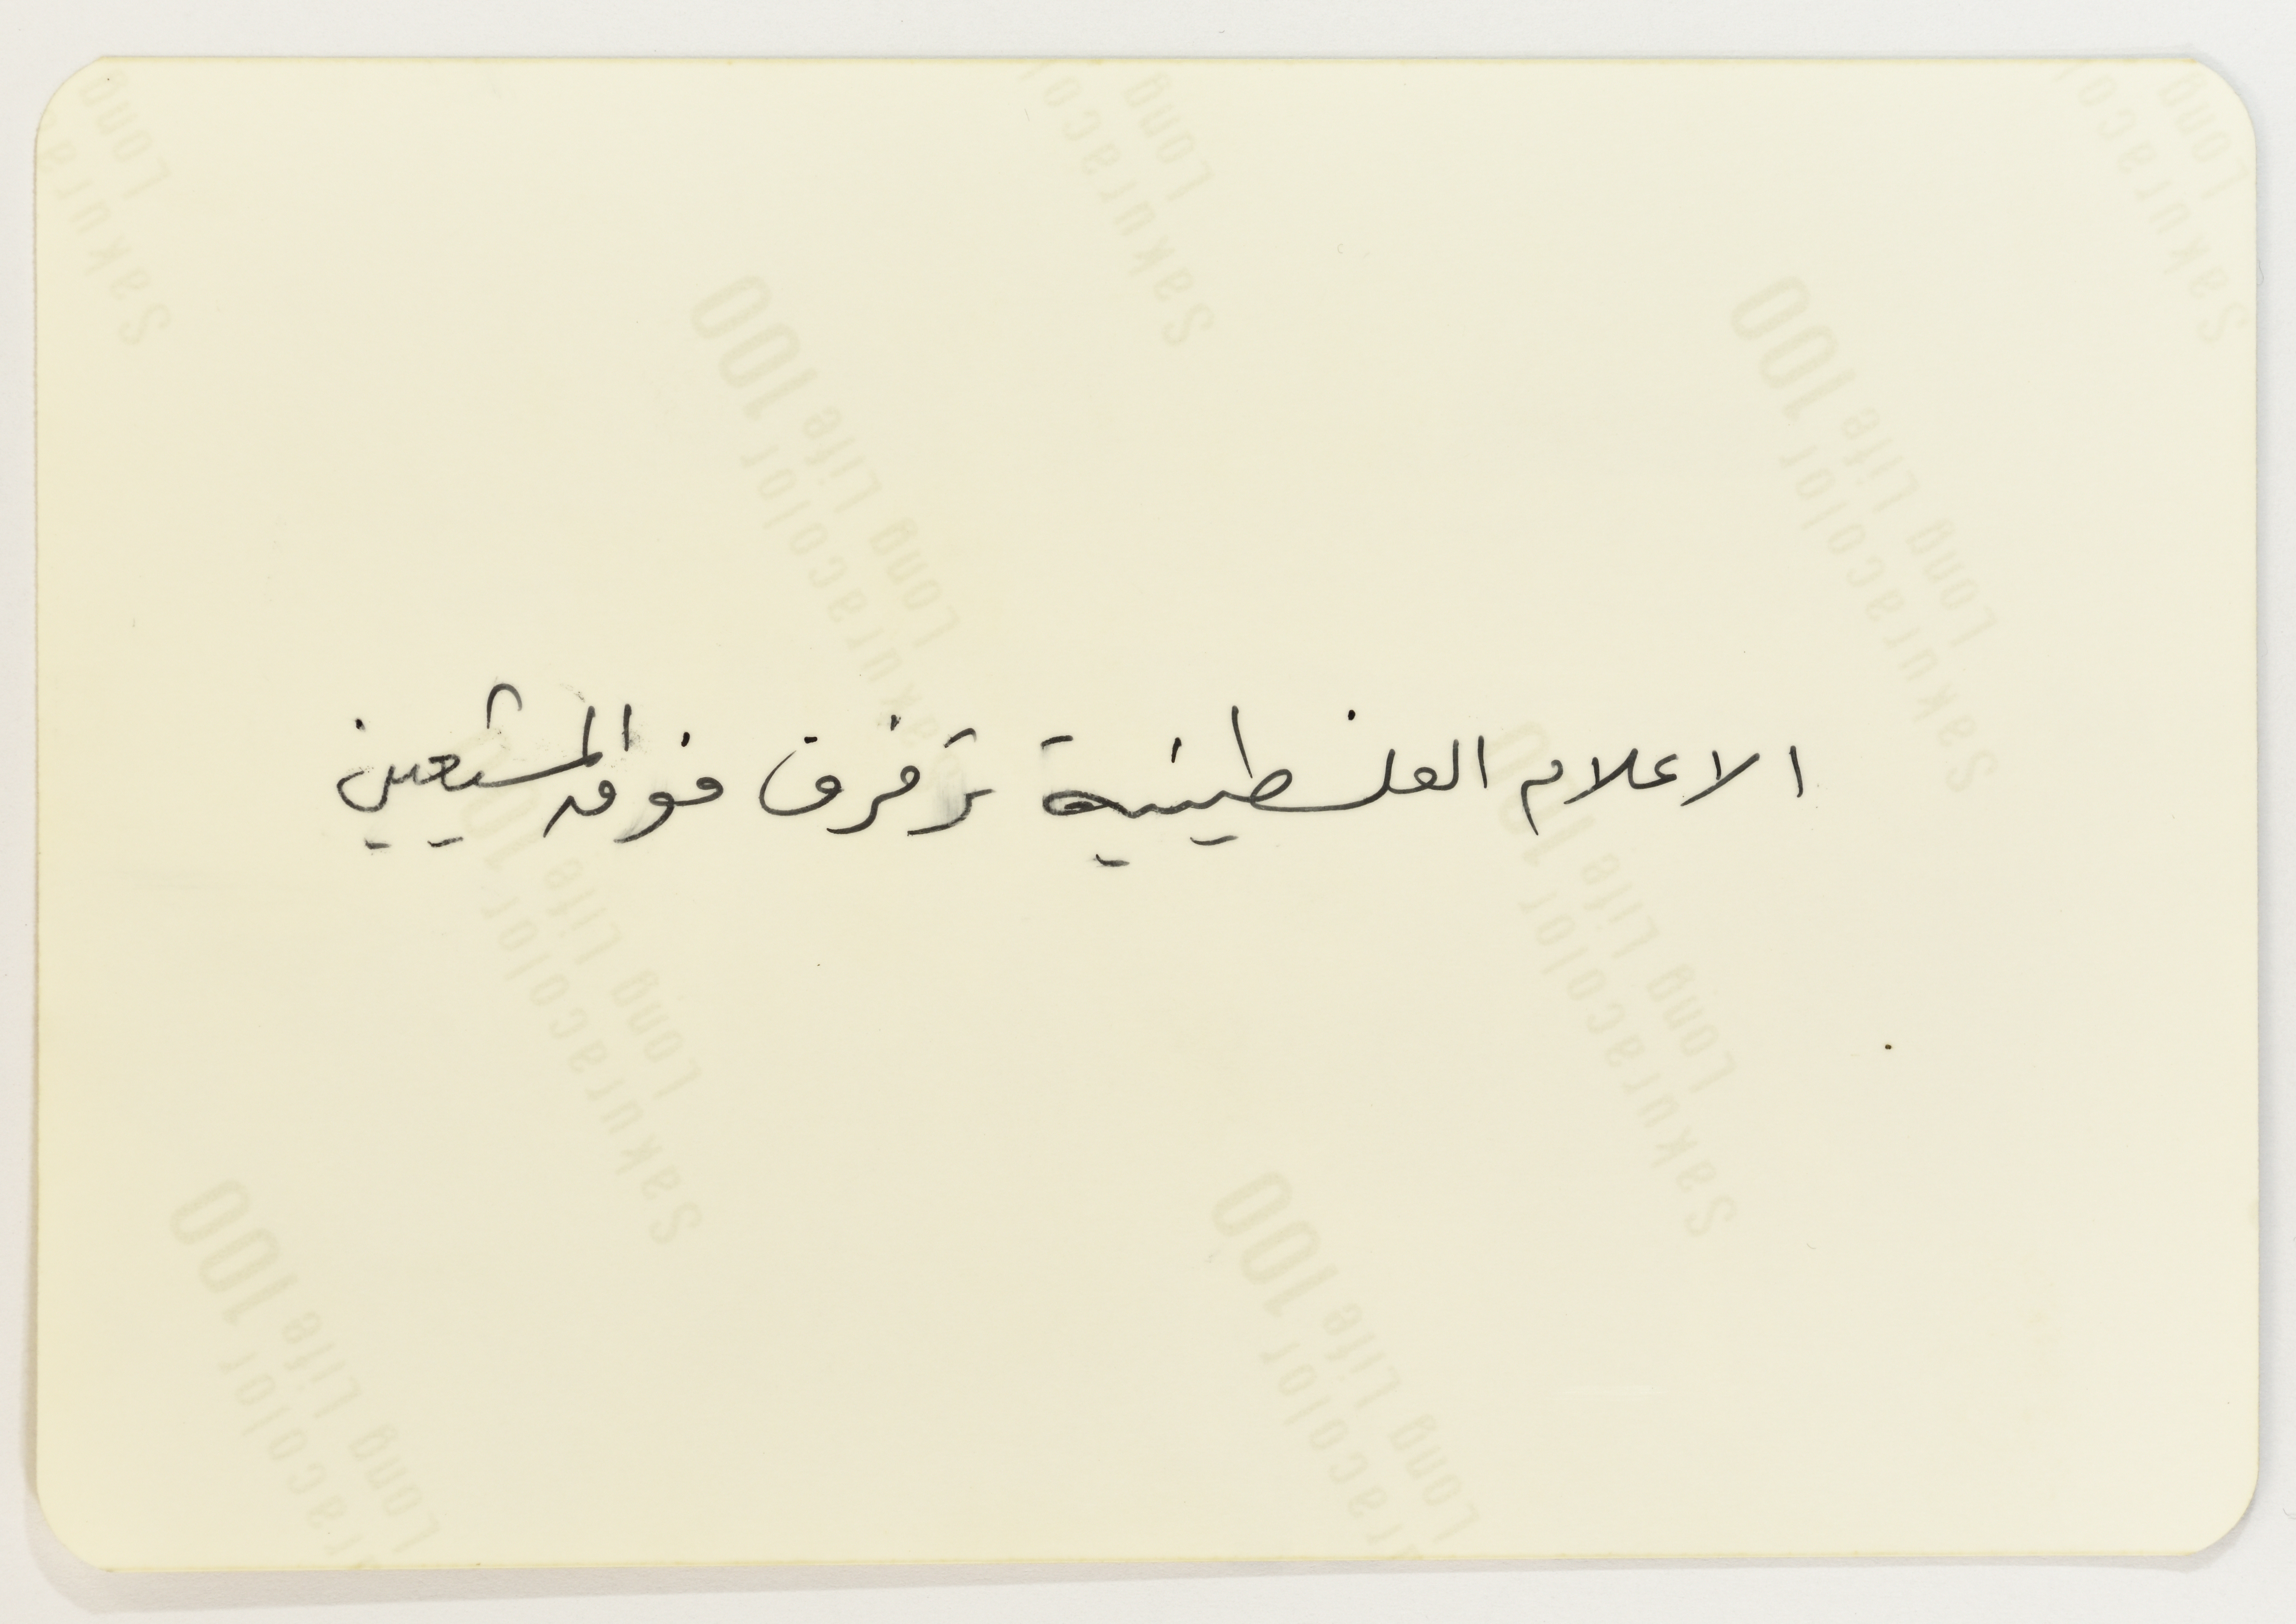 Sakuracolor
Long Life 100
Sakuracolor
Long Life 100
الاعلام الفلسطينية ترفرف فوق المشيعين
Sakuracolor
Long Life 100
Sakuracolor
Long Life 100
Long Life 100
Long Life 100